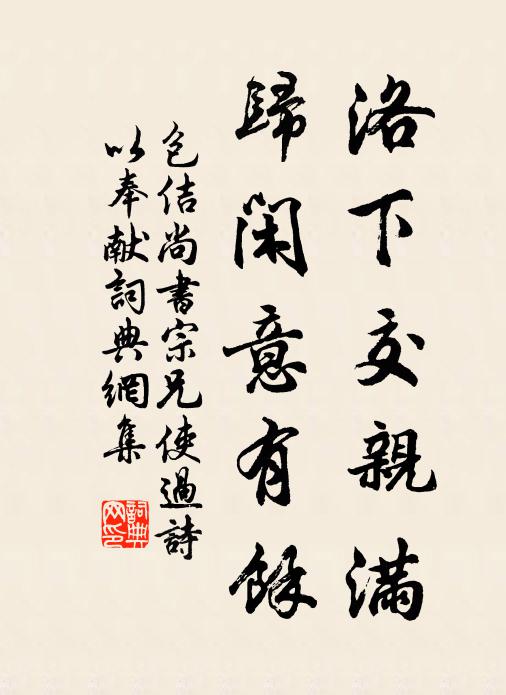 洛下交親滿
歸閑意有餘
包佶尚書宗兄使過詩
以奉献詞典網集
詞典网印